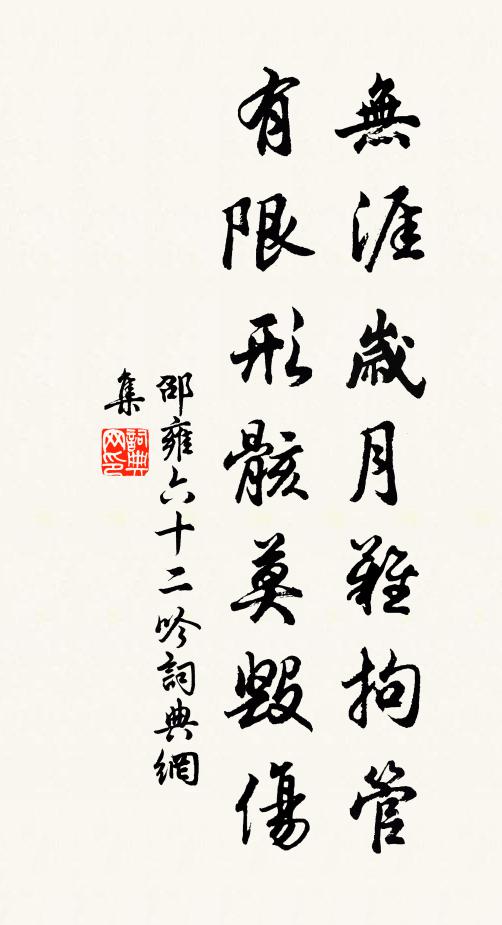 無涯歲月難拘管
有限形骸莫毀傷
邵雍六十二吟詞典網
集
詞典
网印